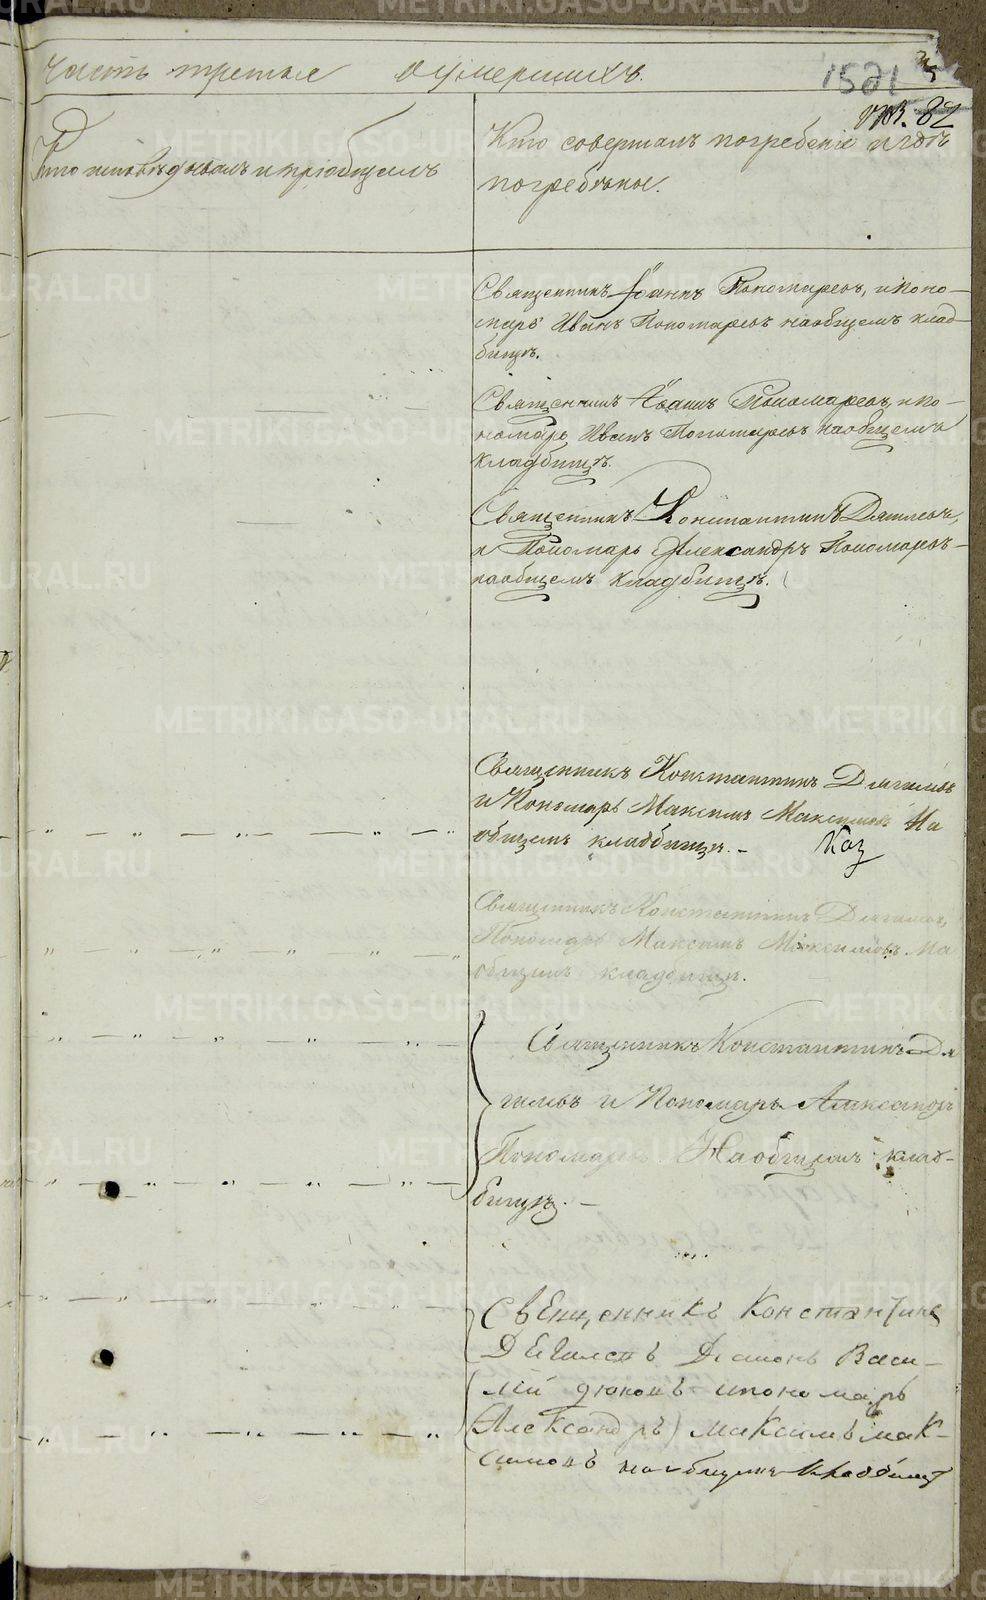 часть третья о умершихъ.
1521
об. 82
Кто исповѣдывалъ и пріобщалъ
Кто совершалъ погребеніе и гдѣ
погребены.
Священникъ Іоаннъ Пономаревъ, и поно-
марь Иванъ Пономаревъ на общемъ клад-
бищѣ.
Священникъ Іоаннъ Пономаревъ, и по-
номарь Иванъ Пономаревъ на общемъ
кладбищѣ.
Священникъ Константинъ Дягилевъ,
и Пономарь Александръ Пономаревъ
на общемъ кладбищѣ.
Священникъ Константинъ Дягилевъ
и Пономарь Максимъ Максимовъ На
общемъ кладбищѣ. -
Священникъ Константинъ Дягилевъ,
Пономарь Максимъ Максимовъ На
общемъ кладбищѣ.
Священникъ Константинъ Дя
гилевъ и Пономарь Александръ
Пономаревъ На общемъ клад-
бищѣ. -
Свещенникъ Константинъ
Дегилевъ Диаконъ Васи-
лій дюковъ и пономарь
Александръ максимъ мак-
симовъ на общемъ кладбищѣ
METRIKI.GASO-URAL.RU